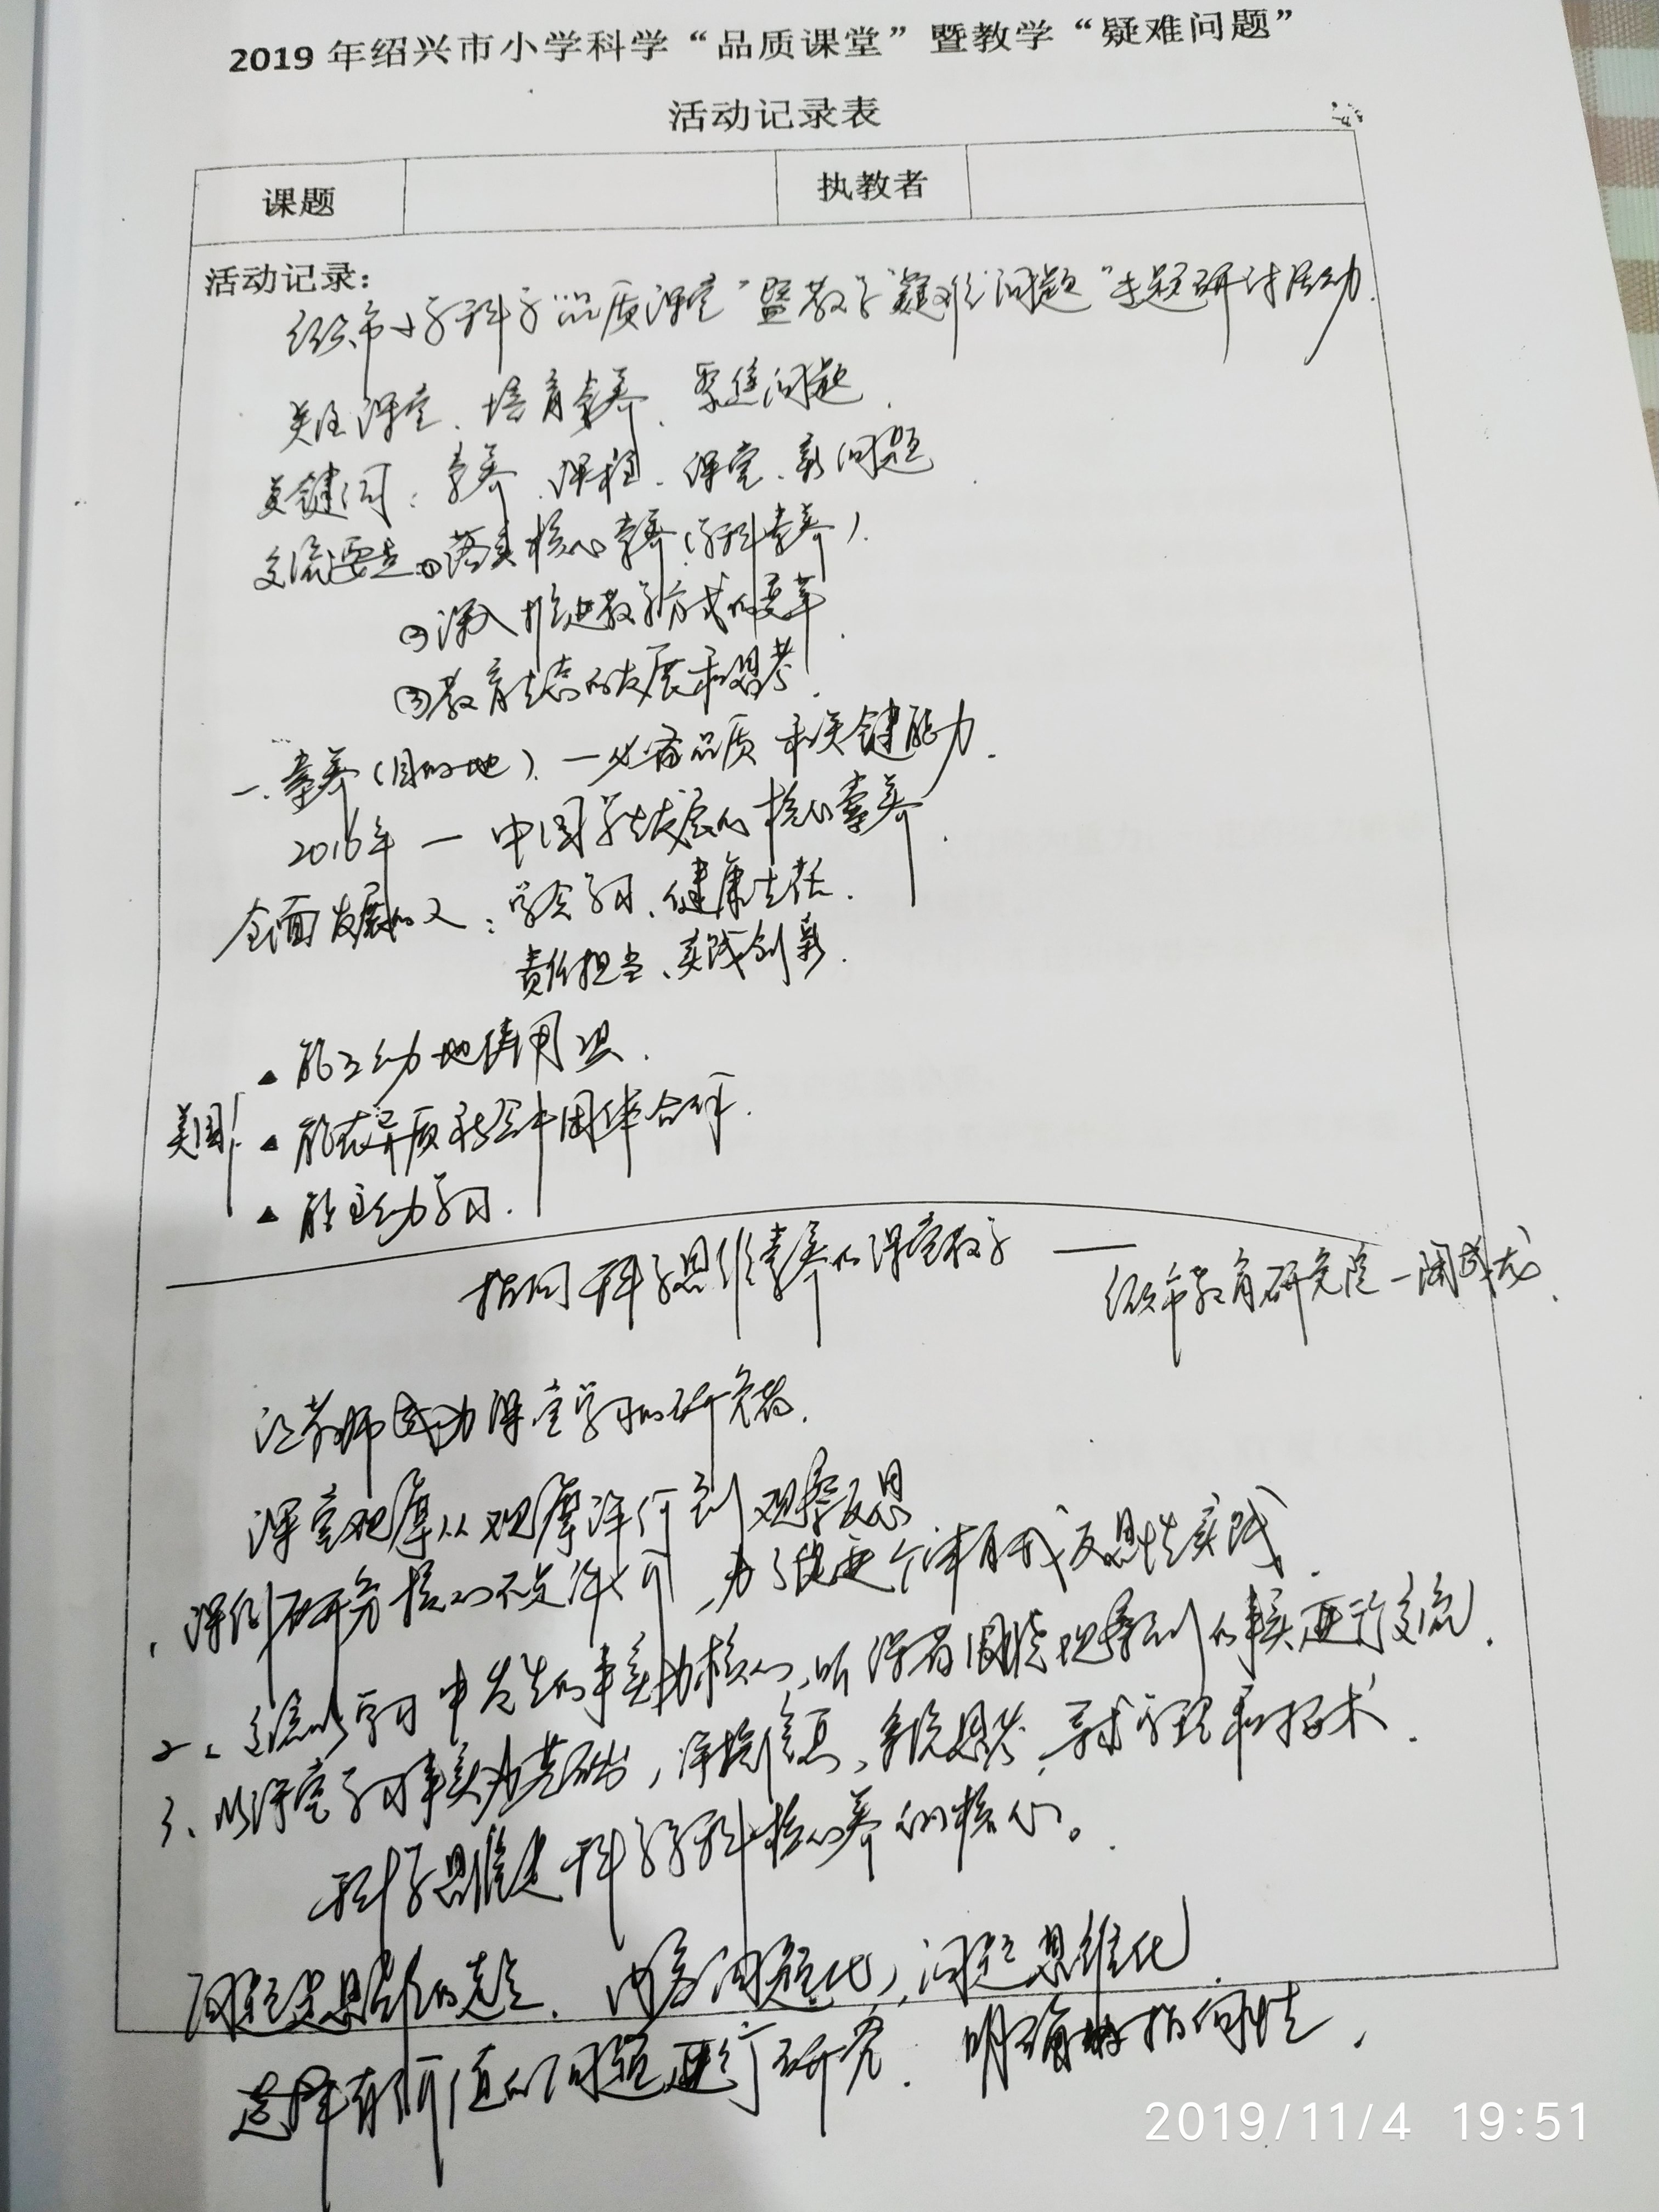 2019年绍兴市小学科学“品质课堂”暨教学“疑难问题”
活动记录表
课题
执教者
活动记录：
绍兴市小学科学“品质课堂”暨教学“疑难问题”主题研讨活动.
关注课堂、培育素养、聚焦问题.
关键词：素养、课程、课堂、新问题
交流要点①落实核心素养(学科素养).
②深入推进教学方式的变革.
③教育生态的发展和思考.
一、素养(目的地).—必备品质和关键能力.
2016年—中国学生发展的核心素养.
全面发展的人：学会学习、健康生活.
责任担当、实践创新.
▲能互动地使用
美国
▲能在异质社会中团体合作.
▲能主动学习.
指向科学思维素养的课堂教学——
绍兴市教育研究院—
让教师成为课堂学习的研究者.
课堂观摩从观摩评价到观察反思
1、课例研究核心不是评价，为了促进个体自我反思性实践.
2、交流以学习中发生的事实为核心、听课者围绕观察到的事实进行交流.
3、以课堂学习事实为基础，信息，系统思考，寻求学理和技术.
科学思维是科学学科核心素养的核心。
问题是思维的起点. 内容问题化，问题思维化.
选择有价值的问题进行研究. 明确的指向性.
2019/11/4 19:51